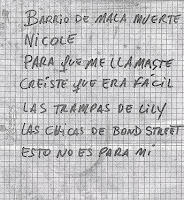 BARRIO DE MALA MUERTE
NICOLE
PARA QUE ME LLAMASTE
CREISTE QUE ERA FÁCIL
LAS TRAMPAS DE LILY
LAS CHICAS DE BOND STREET
ESTO NO ES PARA MÍ